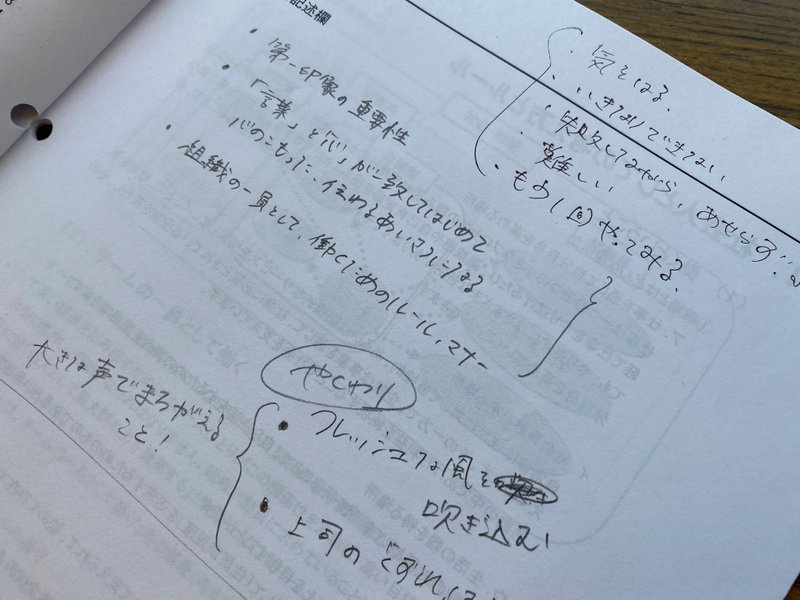 記述欄
・第一印象の重要性
・「言葉」と「心」が一致してはじめて
心のこもった、伝わるあいさつになる
・組織の一員として、働くためのルール、マナー
・気をはる。
・いきなりできない
・失敗しながら、あせらず
・難しい
・もう1回やってみる。
やくわり
大きな声でまちがえる
こと!
・フレッシュな風を
吹き込む
・上司の